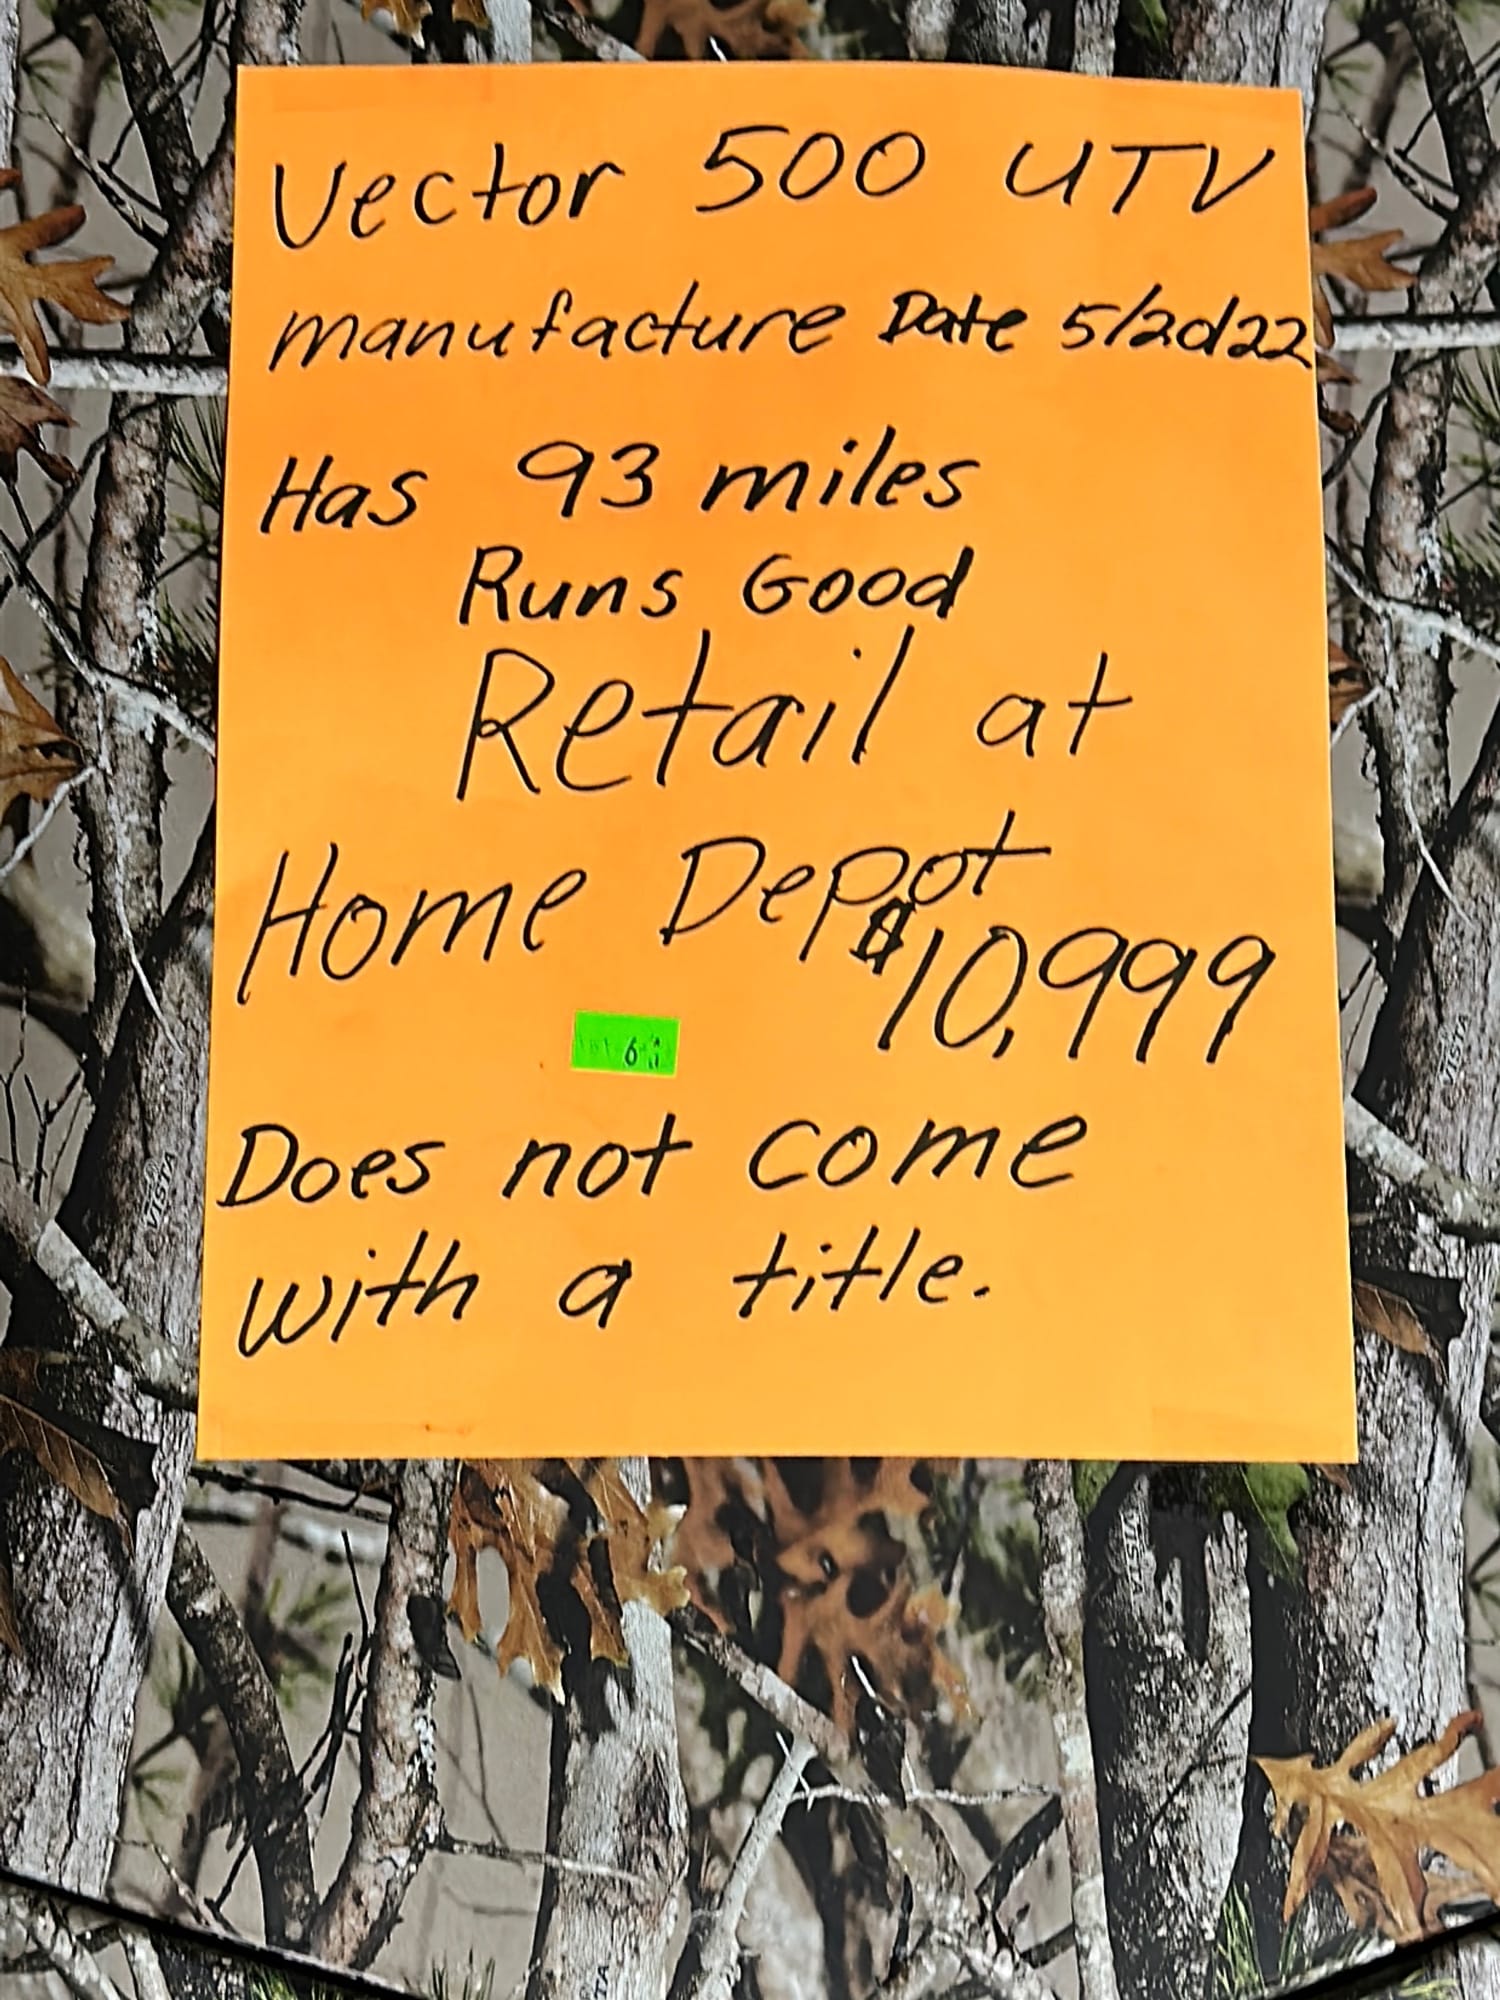 Vector 500 UTV
manufacture Date 5/2022
Has 93 miles
Runs Good
Retail at
Home Depot
$10,999
Does not come
with a title.
VISTA
VISTA
VISTA
VISTA